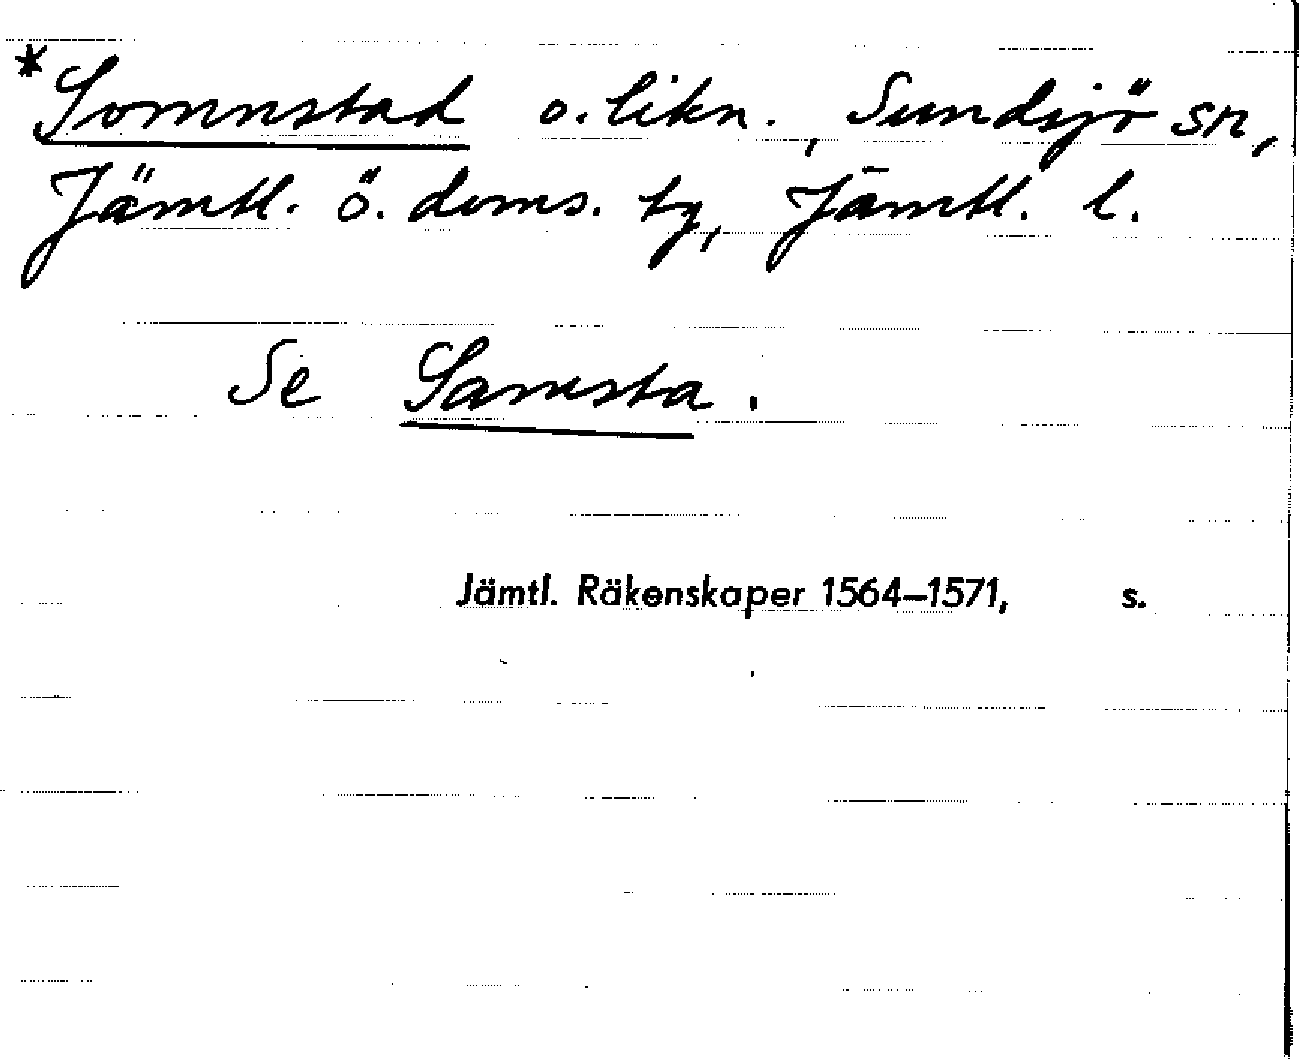 *Somnstad o. likn., Sundsjö sn,
Jämtl. ö. doms. tg, Jämtl. l.
Se Samsta.
Jämtl. Räkenskaper 1564–1571, s.